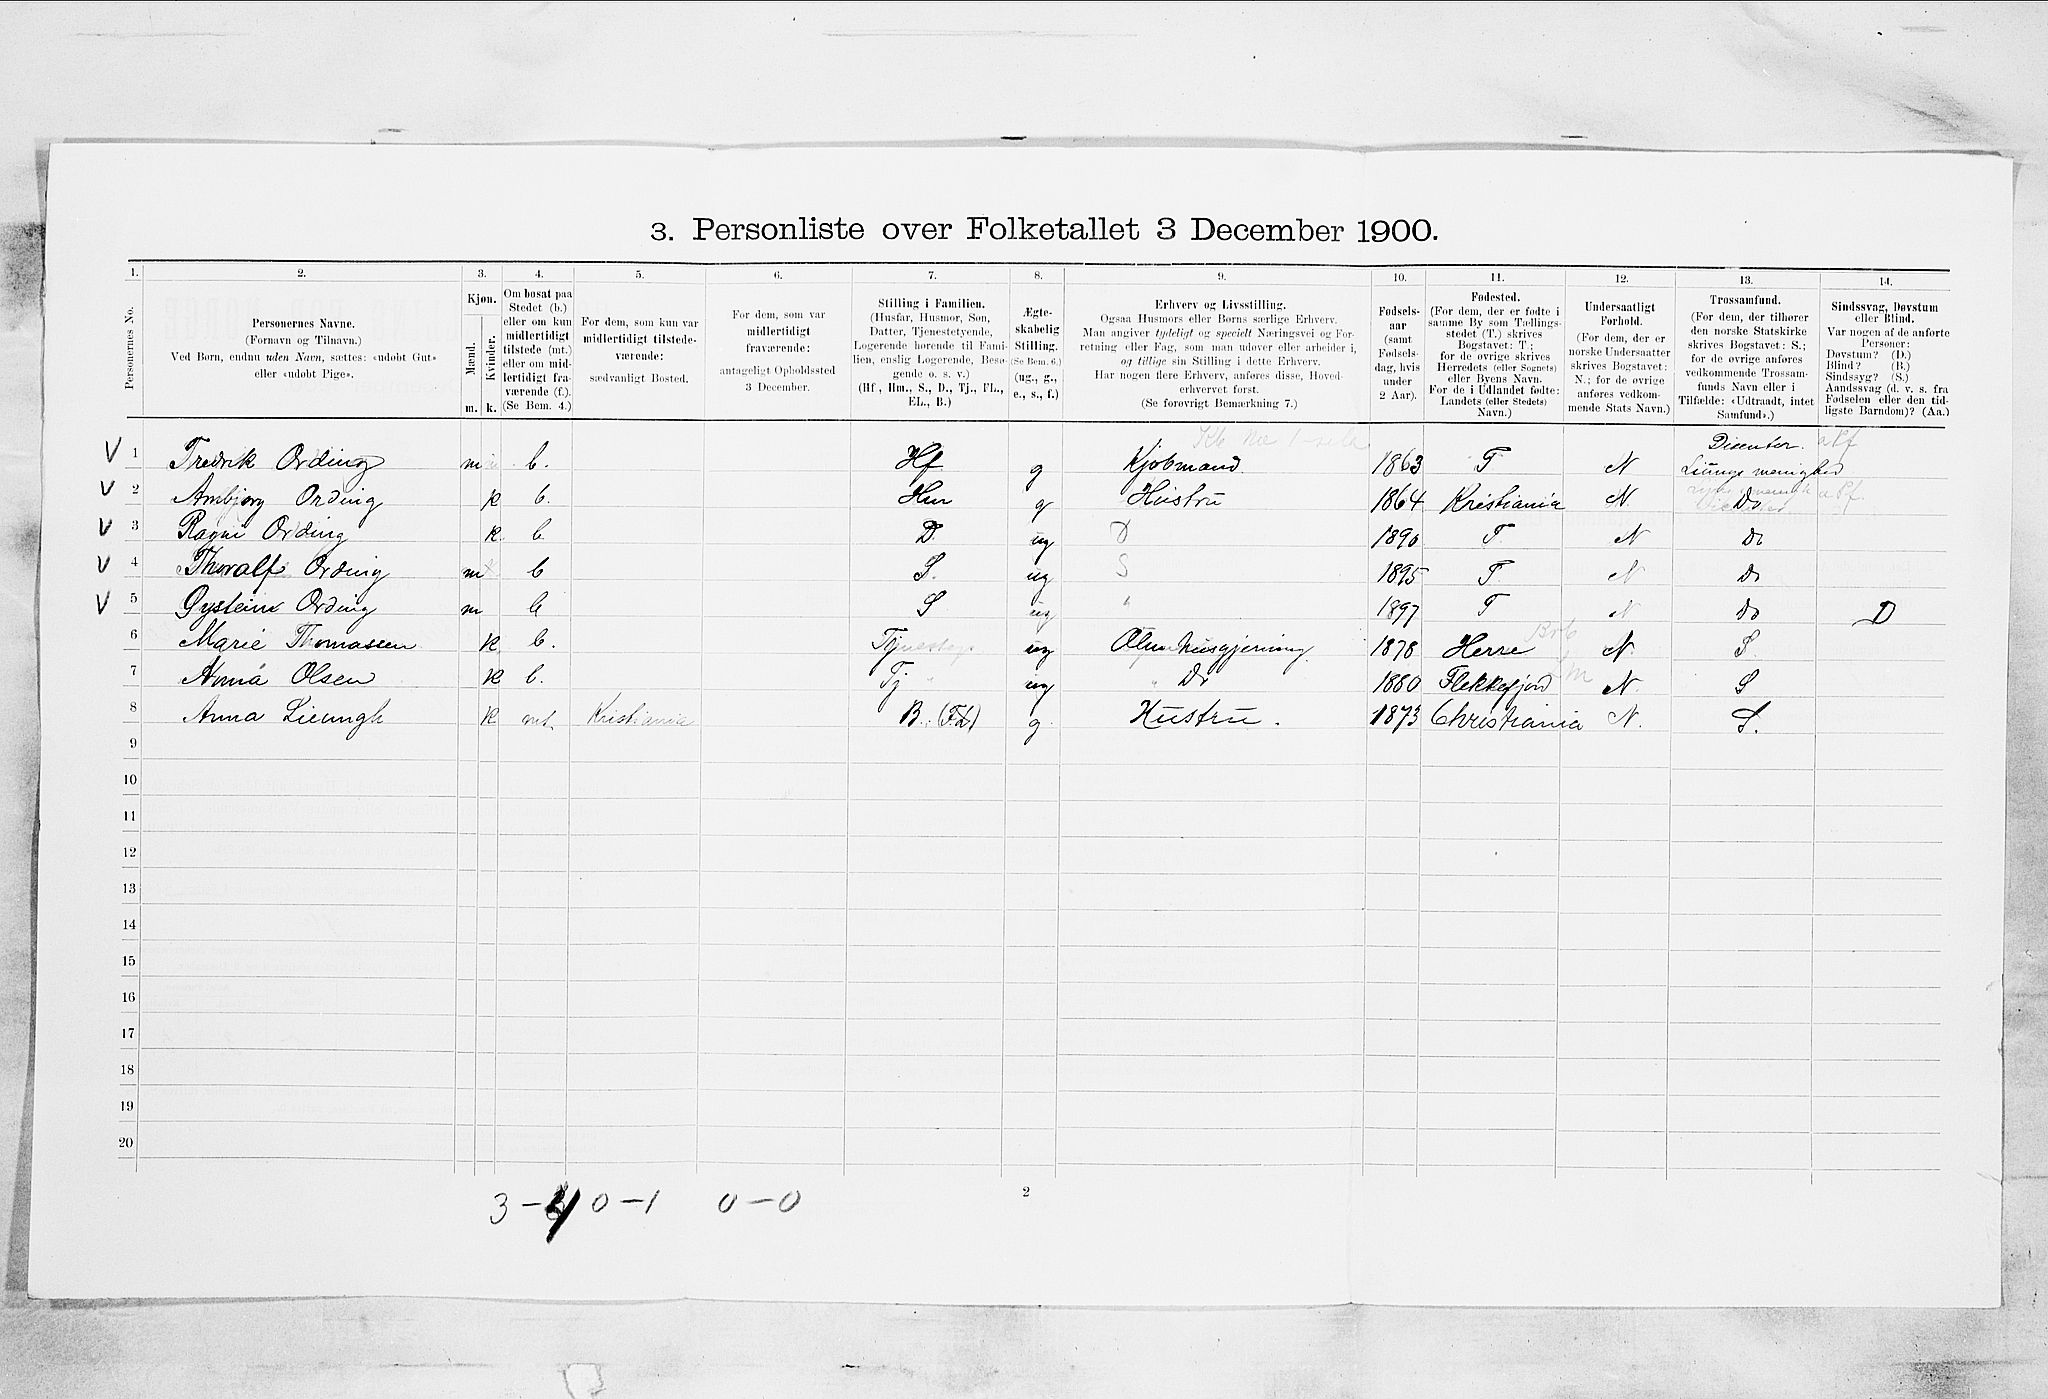 3. Personliste over Folketallet 3 December 1900.
1. 2. 3. 4. 5. 6. 7. 8. 9. 10. 11. 12. 13. 14.
Personernes No.
Personernes Navne.
(Fornavn og Tilnavn.)
Ved Børn, endnu uden Navn, sættes: «udøbt Gut»
eller «udøbt Pige».
Kjøn.
Mænd.
Kvinder.
m. k.
Om bosat paa
Stedet (b.)
eller om kun
midlertidigt
tilstede (mt.)
eller om mid-
lertidigt fra-
værende (f.).
(Se Bem. 4.)
For dem, som kun var
midlertidigt tilstede-
værende:
sædvanligt Bosted.
For dem, som var
midlertidigt
fraværende:
antageligt Opholdssted
3 December.
Stilling i Familien.
(Husfar, Husmor, Søn,
Datter, Tjenestetyende,
Logerende hørende til Fami-
lien, enslig Logerende, Besø-
gende o. s. v.)
(Hf., Hm., S., D., Tj., FL.,
EL., B.)
Ægte-
skabelig
Stilling.
(Se Bem. 6.)
(ug., g.,
e., s., f.)
Erhverv og Livsstilling.
Ogsaa Husmors eller Børns særlige Erhverv.
Man angiver tydeligt og specielt Næringsvei og For-
retning eller Fag, som man udøver eller arbeider i,
og tillige sin Stilling i dette Erhverv.
Har nogen flere Erhverv, anføres disse, Hoved-
erhvervet først.
(Se forøvrigt Bemærkning 7.)
Fødsels-
aar
(samt
Fødsels-
dag, hvis
under
2 Aar).
Fødested.
(For dem, der er fødte i
samme By som Tællings-
stedet (T.) skrives
Bogstavet: T.;
for de øvrige skrives
Herredets (eller Sognets)
eller Byens Navn.
For de i Udlandet fødte:
Landets (eller Stedets)
Navn.)
Undersaatligt
Forhold.
(For dem, der er
norske Undersaatter
skrives Bogstavet:
N.; for de øvrige
anføres vedkom-
mende Stats Navn.)
Trossamfund.
(For dem, der tilhører
den norske Statskirke
skrives Bogstavet: S.;
for de øvrige anføres
vedkommende Trossam-
funds Navn eller i
Tilfælde: «Udtraadt, intet
Samfund».)
Sindssvag, Døvstum
eller Blind.
Var nogen af de anførte
Personer:
Døvstum? (D.)
Blind? (B.)
Sindssyg? (S.)
Aandssvag (d. v. s. fra
Fødselen eller den tid-
ligste Barndom)? (Aa.)
V 1 Fredrik Ording m b. Hf g Kjøbmand 1863 T N Dicenter.
V 2 Arnbjorg Ording k b. Hm g Hustru 1864 Kristiania N. Do
V 3 Ragni Ording k b D. ug D 1890 T. N Do
V 4 Thoralf Ording m b S. ug S 1895 T. N Do
V 5 Øystein Ording m b S ug " 1897 T N Do D
6 Marie Thomassen k b. ug 1878 Herre N. S.
7 Anna Olsen k b. Tj " ug " Do 1880 Flekkefjord N S
8 Anna Lieungh k mt. Kristiania B. (FL) g. Hustru. 1873 Christiania N. S.
9
10
11
12
13
14
15
16
17
18
19
20
3 – 4 0 – 1 0 – 0
2